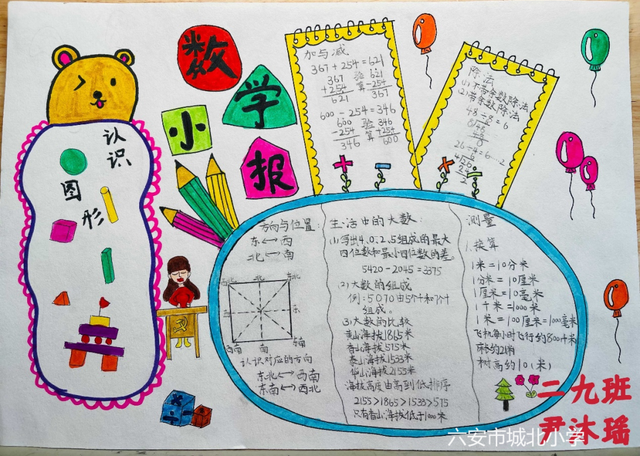 数
学
小
报
认识
图形
加与减
367+254=621
367 验 621
+254 算 -254
621 367
600-254=346
600 验 346
-254 算 +254
346 600
除法
(1)不带余数除法
(2)带余数除法
48÷8=6
方向与位置
东←→西
北←→南
认识对应的方向
东北←→西南
东南←→西北
生活中的大数:
(1)写出4.0.2.5组成的最大
四位数和最小四位数的差
5420-2045=3375
2)大数的组成
例:5070由5个千和7个十
组成.
3)大数的比较
黄山海拔1865米
香山海拔575米
泰山海拔1533米
华山海拔2155米
海拔高度由高到低排序
2155>1865>1533>575
只有香山海拔低于1000米
测量
1.换算
1米=10分米
1分米=10厘米
1厘米=10毫米
1千米=1000米
1米=100厘米=1000毫米
飞机每小时飞行约800千米
树高约10(米)
二九班
尹沐瑶
六安市城北小学